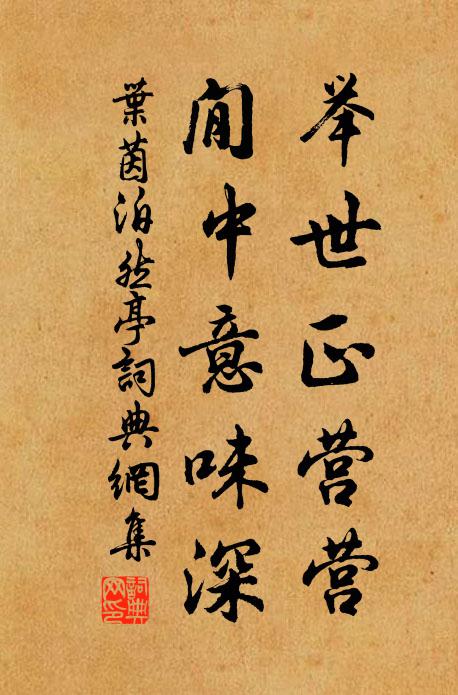 举世正营营
闲中意味深
葉茵泊然亭詞典網集
詞典网印